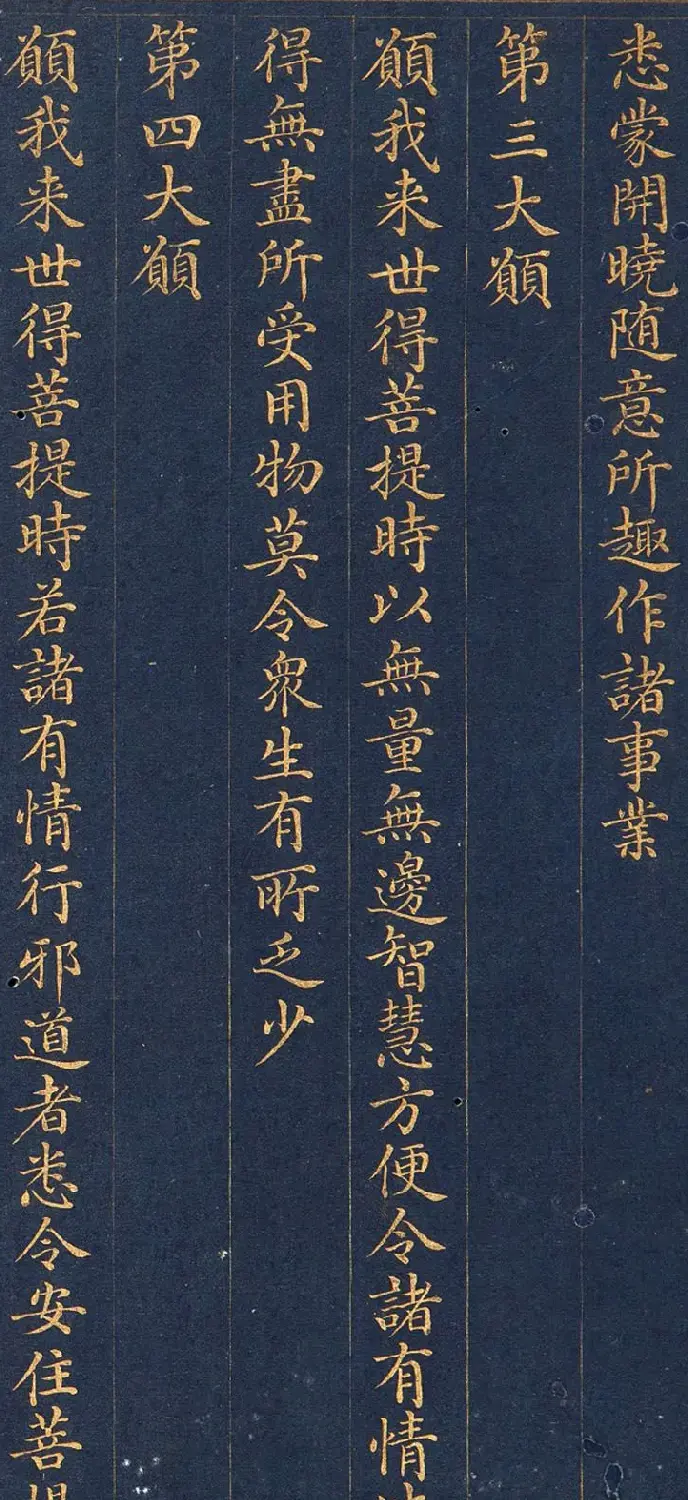 悉蒙開曉随意所趣作諸事業
第三大願
願我来世得菩提時以無量無邊智慧方便令諸有情
得無盡所受用物莫令衆生有所乏少
第四大願
願我来世得菩提時若諸有情行邪道者悉令安住菩